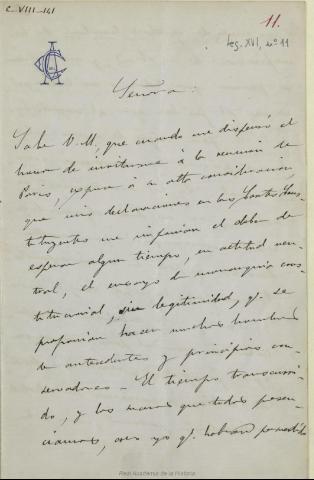 C-VIII-141
11.
Leg. XVI, nº 11
Señora:
Sabe V. M. que cuando me dispensó el
honor de invitarme á la reunión de
Paris, expuse á su alta consideración,
que mis declaraciones en las Cortes Cons-
tituyentes me imponían el deber de
esperar algun tiempo, en actitud neu-
tral, el ensayo de monarquía cons-
titucional, sin legitimidad, q. se
proponían hacer muchos hombres
de antecedentes y principios con-
servadores - El tiempo transcurri-
do, y los que todos presen-
ciamos, creo yo q. habrán
Real Academia de la Historia